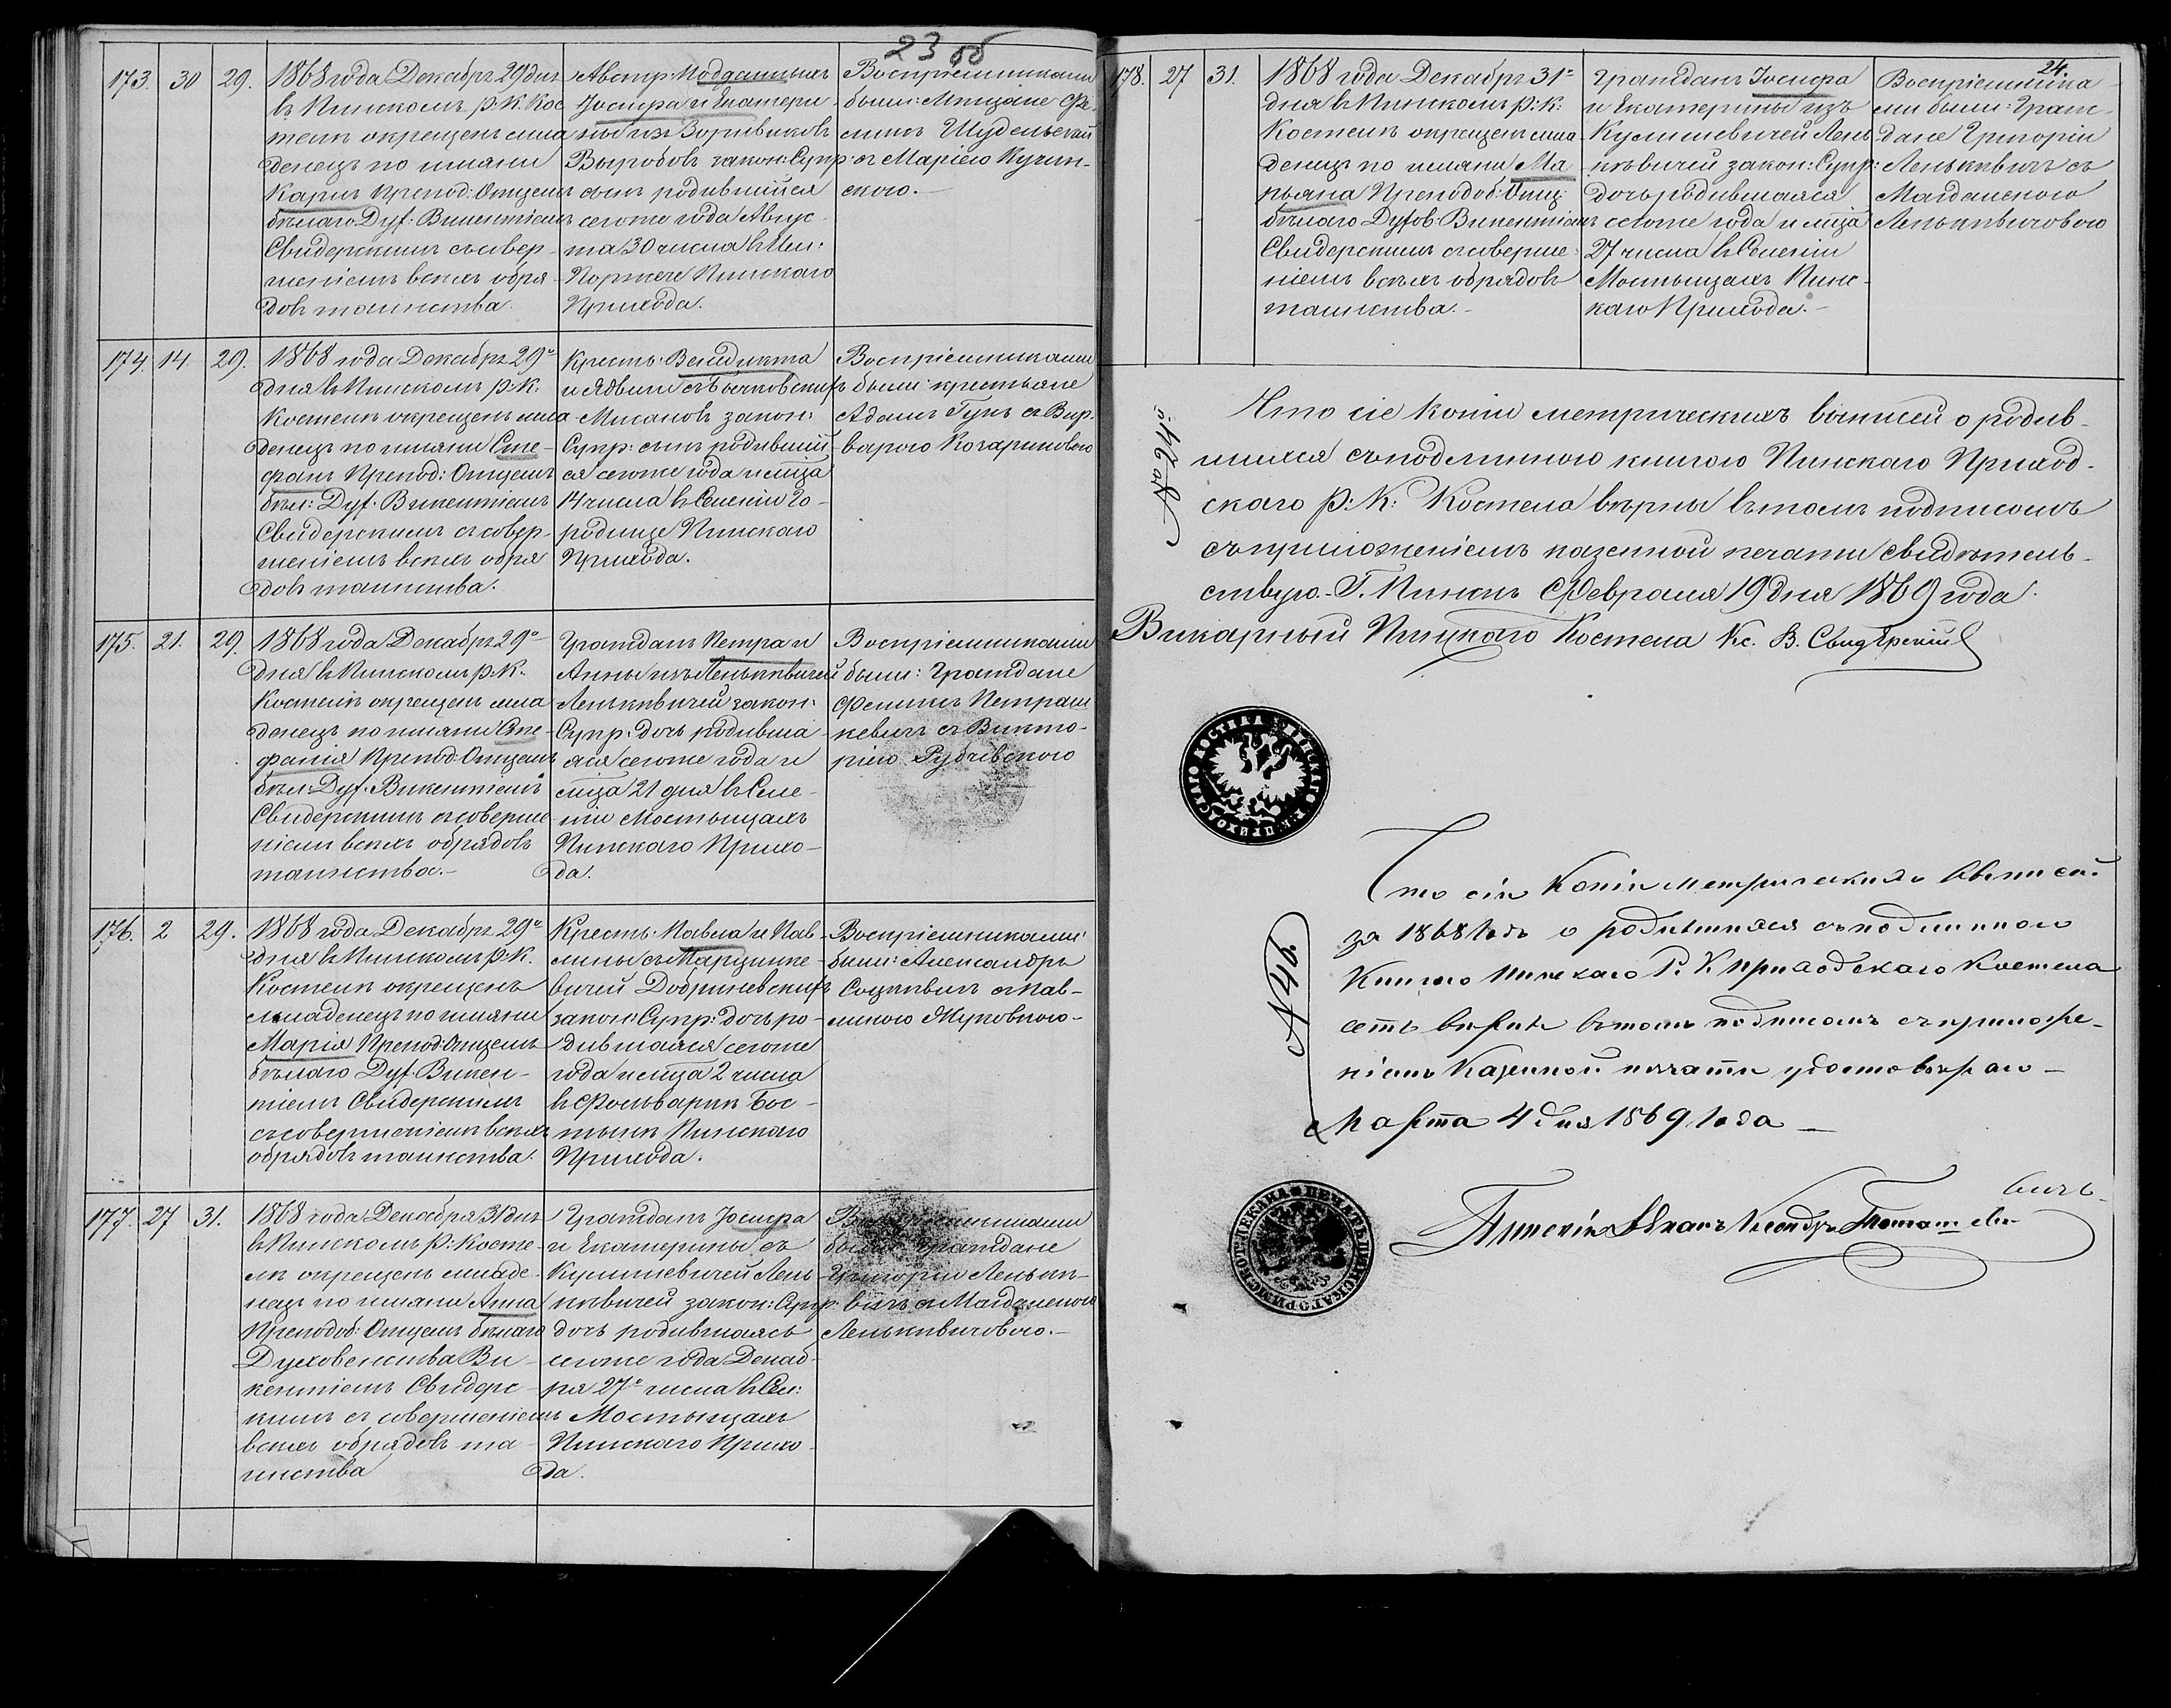 23 об
173. 30 29.
1868 года Декабря 29 дня
въ Пинскомъ р. К. Кос
телѣ окрещенъ мла
денецъ по имяни
Карлъ Препод: Отцемъ
бѣлаго Дух. Викентіемъ
Свидерскимъ съ совер-
шеніемъ всѣхъ обря-
довъ таинства.
Австр: Подданныхъ
Іосифа и Екатери-
ны изъ
закон: Супр:
сынъ родившійся
сегоже года Авгус-
та 30 числа въ Им:
Пинскаго
Прихода.
Воспріемниками
были: Мѣщане Фе-
ликъ
съ Маріею Кучин-
скою.
174. 14. 29.
1868 года Декабря 29°
дня въ Пинскомъ р. К.
Костелѣ окрещенъ мла
денецъ по имяни Сте-
фанъ Препод: Отцемъ
бѣл: Дух. Викентіемъ
Свидерскимъ съ совер-
шеніемъ всѣхъ обря
довъ таинства.
Кресть: Венедикта
и Ядвиги съ Бычковскихъ
закон:
Супр: сынъ родившій-
ся сегоже года и м-ца
14 числа въ Селеніи Го-
родище Пинскаго
Прихода.
Воспріемниками
были: крестьяне
Адамъ съ Вар-
варою
175. 21. 29.
1868 года Декабря 29°
дня въ Пинскомъ р. К.
Костелѣ окрещенъ мла
денецъ по имяни Сте-
фанія Препод: Отцемъ
бѣл: Дух. Викентіемъ
Свидерскимъ съ соверше
ніемъ всѣхъ обрядовъ
таинства.
Гражданъ Петра и
Анны изъ Ленькевичей
Ленькевичей закон:
Супр: дочь родивша-
яся сегоже года и
м-ца 21 дня въ Селе-
ніи Мостыщахъ
Пинскаго Прихо-
да.
Воспріемниками
были: Граждане
Феликсъ Петраш
кевичъ съ Викто-
ріею
176. 2 29.
1868 года Декабря 29°
дня въ Пинскомъ р. К.
Костелѣ окрещенъ
младенецъ по имяни
Марія Препод: Отцемъ
бѣлаго Дух. Викен-
тіемъ Свидерскимъ
съ совершеніемъ всѣхъ
обрядовъ таинства.
Кресть: Павла и Пав-
лины съ Марцинке-
вичей Добриневскихъ
закон: Супр: дочь ро-
дившаяся сегоже
года и м-ца 2 числа
въ Фольваркѣ
Пинскаго
Прихода.
Воспріемниками
были: Александръ
съ Пав-
линою Жуковною
177. 27 31.
1868 года Декабря 31 дня
въ Пинскомъ р: Косте-
лѣ окрещенъ младе-
нецъ по имяни Анна
Преподоб: Отцемъ бѣлаго
Духовенства Ви-
кентіемъ Свидерс-
кимъ съ совершеніемъ
всѣхъ обрядовъ та-
инства
Гражданъ Іосифа
и Екатерины съ
Кулишевичей Лень
кѣвичей закон: Супр:
дочь родившаяся
сегоже года Декаб-
ря 27° числа въ Сел:
Мостыщахъ
Пинскаго Прихо-
да.
Воспріемниками
были: Граждане
Григорій Ленькѣ-
вичъ съ Магдаленою
Ленькѣвичовою.
24.
178. 27 31.
1868 года Декабря 31°
дня въ Пинскомъ р: К:
Костелѣ окрещенъ мла
денецъ по имяни Ма
рьяна Преподоб: Отц:
бѣлаго Духов: Викентіемъ
Свидерскимъ съ соверше
ніемъ всѣхъ обрядовъ
таинства.
Гражданъ Іосифа
и Екатерины изъ
Кулишевичей Лень
кѣвичей закон: Супр:
дочь родившаяся
сегоже года и м-ца
27 числа въ Селеніи
Мостыщахъ Пинс-
каго Прихода.
Воспріемника
ми были: Граж-
дане Григорій
Ленькѣвичъ съ
Магдаленою
Ленькѣвичовою
Что сіе копіи метрическихъ выписей о родив-
шихся съ подлинною книгою Пинскаго Приход-
скаго р. К: Костела вѣрны въ томъ подписомъ
съ приложеніемъ казенной печати свидѣтель-
ствую. Г. Пинскъ Февраля 19 дня 1869 года.
Викарный Пинскаго Костела Кс. В. Свидерскій
Что сіи Копіи метрическихъ выписей
за 1868 годъ о родившихся съ подлинною
Книгою Пинскаго Р. К. приходскаго Костела
есть вѣрны въ томъ подписомъ съ приложе-
ніемъ Казенной печати удостовѣряю
№ 46.
Марта 4 дня 1869 года